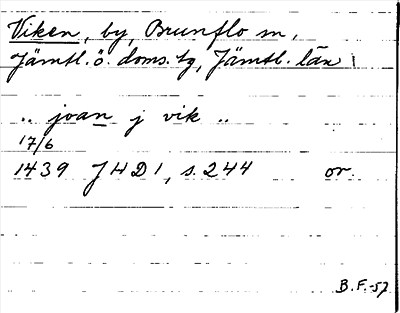 Viken, by, Brunflo sn,
Jämtl. ö. doms. tg, Jämtl. län
.. joan j vik ..
17/6
1439 JHD 1, s. 244 or.
B.F.-57